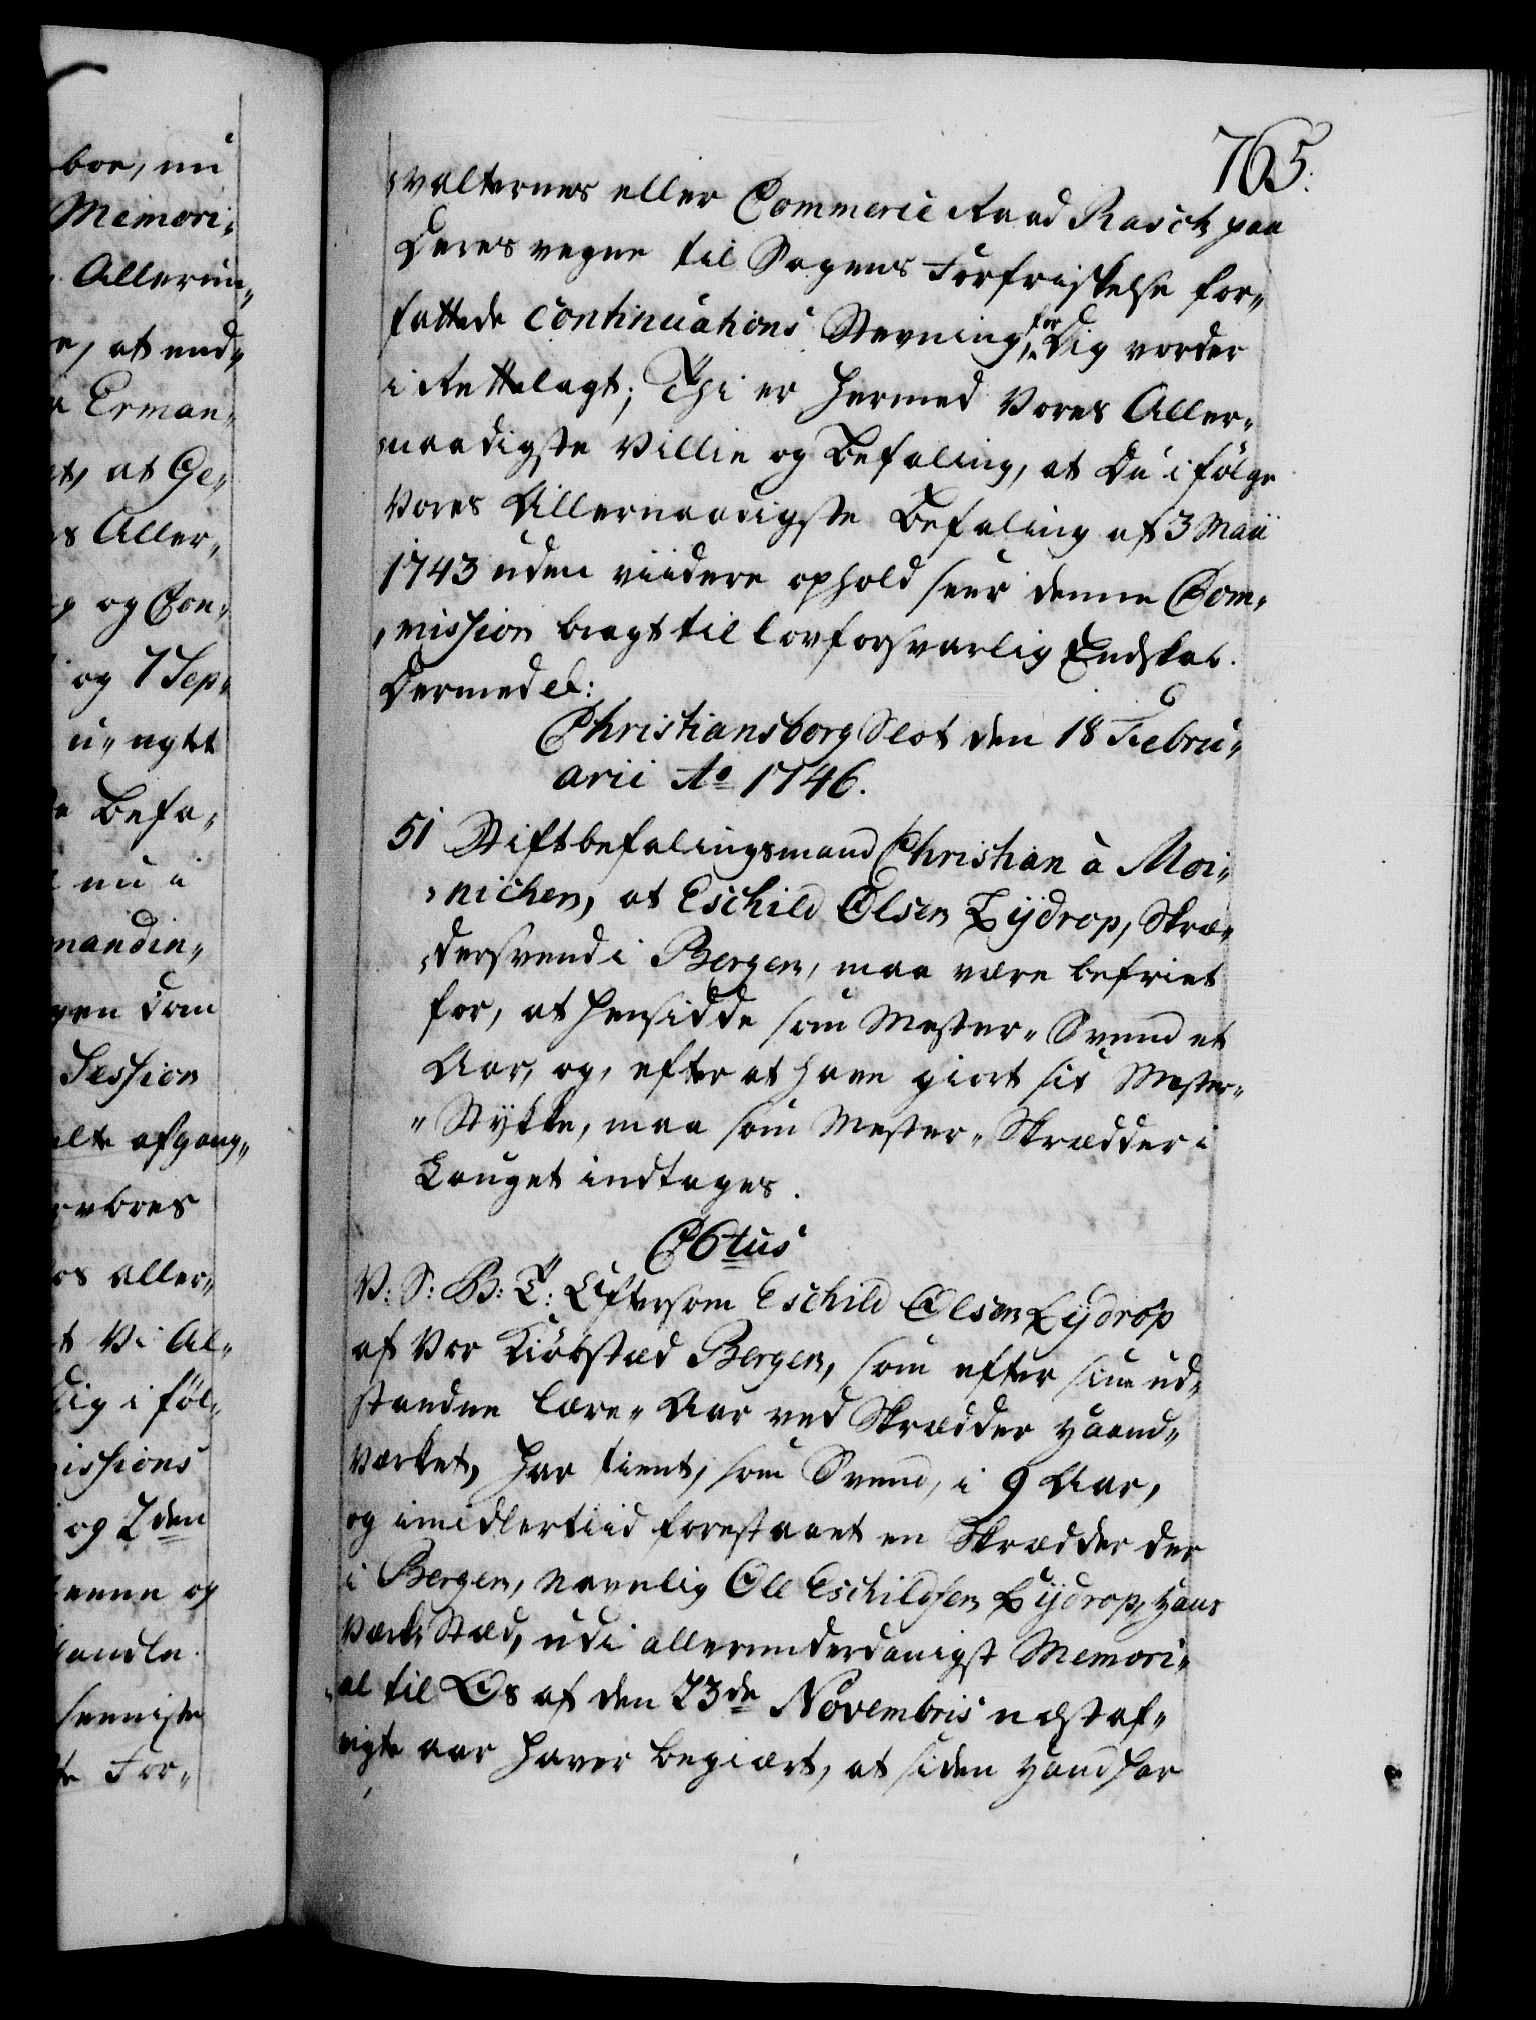 boe, nu
Memori„
Allerun„
e, at end„
Erman„
at Ge„
Aller„
og Con„
og 7 Sep„
u„ nytt
Befa„
nu i
mandin„
gen dom
Session
afgang„
vores
os aller„
Vi Al„
Dig i föl„
issions
og 2den
denne og
handle
senniste
For„
765.
„valternes eller Commerce Raad Rasch paa
Deres vegne til Sagens Forfriskelse for„
fattede Continuations Stevning, for Dig vorder
i Rettelagt; Thi er hermed Vores Aller„
naadigste Villie og Befaling, at Du i fölge
Vores Allernaadigste Befaling af 3 Maii
1743 uden viidere ophold seer denne Com„
„mission bragt til lovforsvarlig Endskab.
Dermed &:
Christiansborg Slot den 18 Febru„
arii Ao 1746.
51 Stiftbefalingsmand Christian à Moi„
„nichen, at Eschild Olsen Lÿdrop, Skræ„
„dersvend i Bergen, maa være befriet
for, at hensidde som Mester„ Svend et
Aar, og, efter at have giort sit Mester„
„Stÿkke, maa som Mester„ Skrædder i
Lauget indtages.
C6tus
V: S: B: T: Eftersom Eschild Olsen Lÿdrop
af Vor Kiöbstæd Bergen, som efter sine ud„
standne lære„ Aar ved Skrædder Haand„
værket, har tient, som Svend, i 9 Aar,
og imidlertiid forestaaet en Skrædder der
i Bergen, navnlig Ole Eschildsen Lÿdrop, Hans
Værk„ Stæd, udi allerunderdanigst Memori„
„al til Os af den 23de Novembris næstaf„
vigte aar haver begiært, at siden Hand har